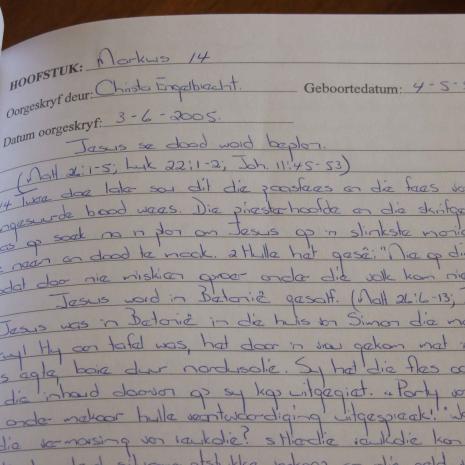 HOOFSTUK: Markus 14
Oorgeskryf deur: Christa Engelbrecht. Geboortedatum: 4-5-
Datum oorgeskryf: 3-6-2005.
Jesus se dood word beplan.
(Matt 26:1-5; Luk 22:1-2; Joh. 11:45-53)
14 Twee dae later sou dit die paasfees en die fees va
ngesuurde brood wees. Die priesterhoofde en die skrifge
as op soek na 'n plan om Jesus op 'n slinkste manie
e neem en dood te maak. 2 Hulle het gesê: "Nie op di
odat daar nie miskien oproer onder die volk kom nie
Jesus word in Betanië gesalf. (Matt 26:6-13,
Jesus was in Betanië in die huis van Simon die me
wyl Hy aan tafel was, het daar 'n vrou gekom met
s egte, baie duur nardusolie. Sy het die fles oo
die inhoud daarvan op sy kop uitgegiet. 4 Party va
onder mekaar hulle verontwaardiging uitgespreek: "Wa
die vermorsing van reukolie? 5 Hierdie reukolie kan